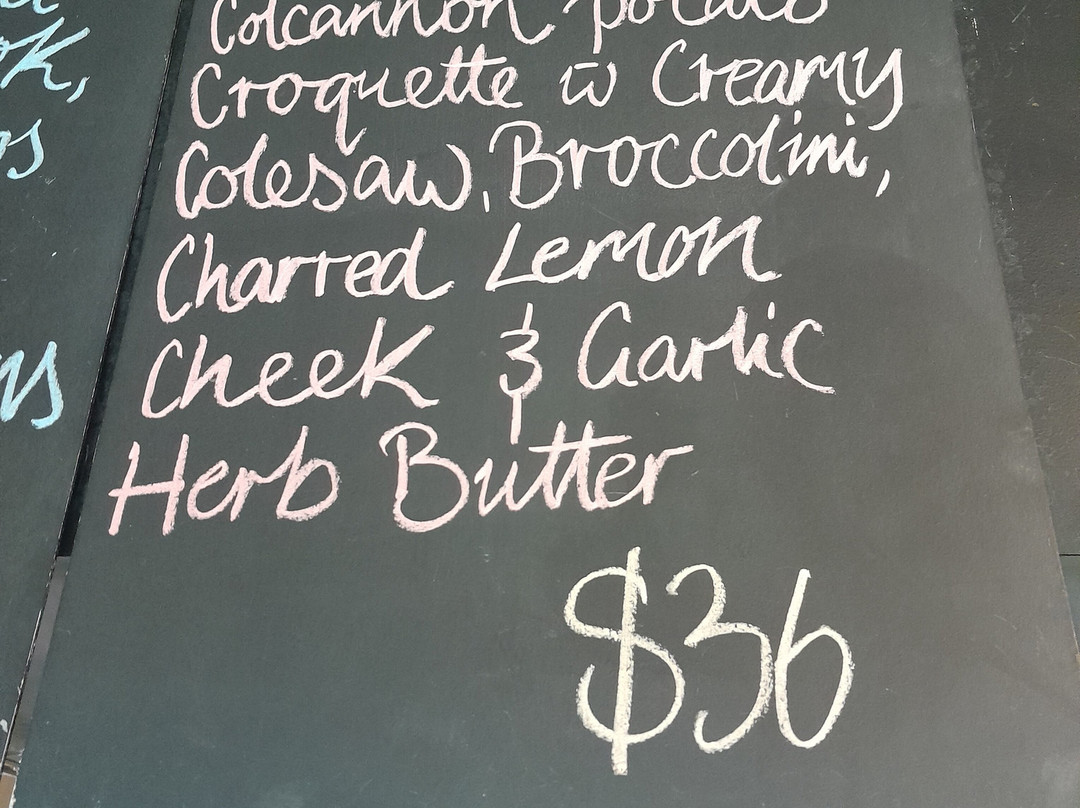 Colcannon potato
Croquette w Creamy
Colesaw, Broccolini,
Charred Lemon
Cheek & Garlic
Herb Butter
$36